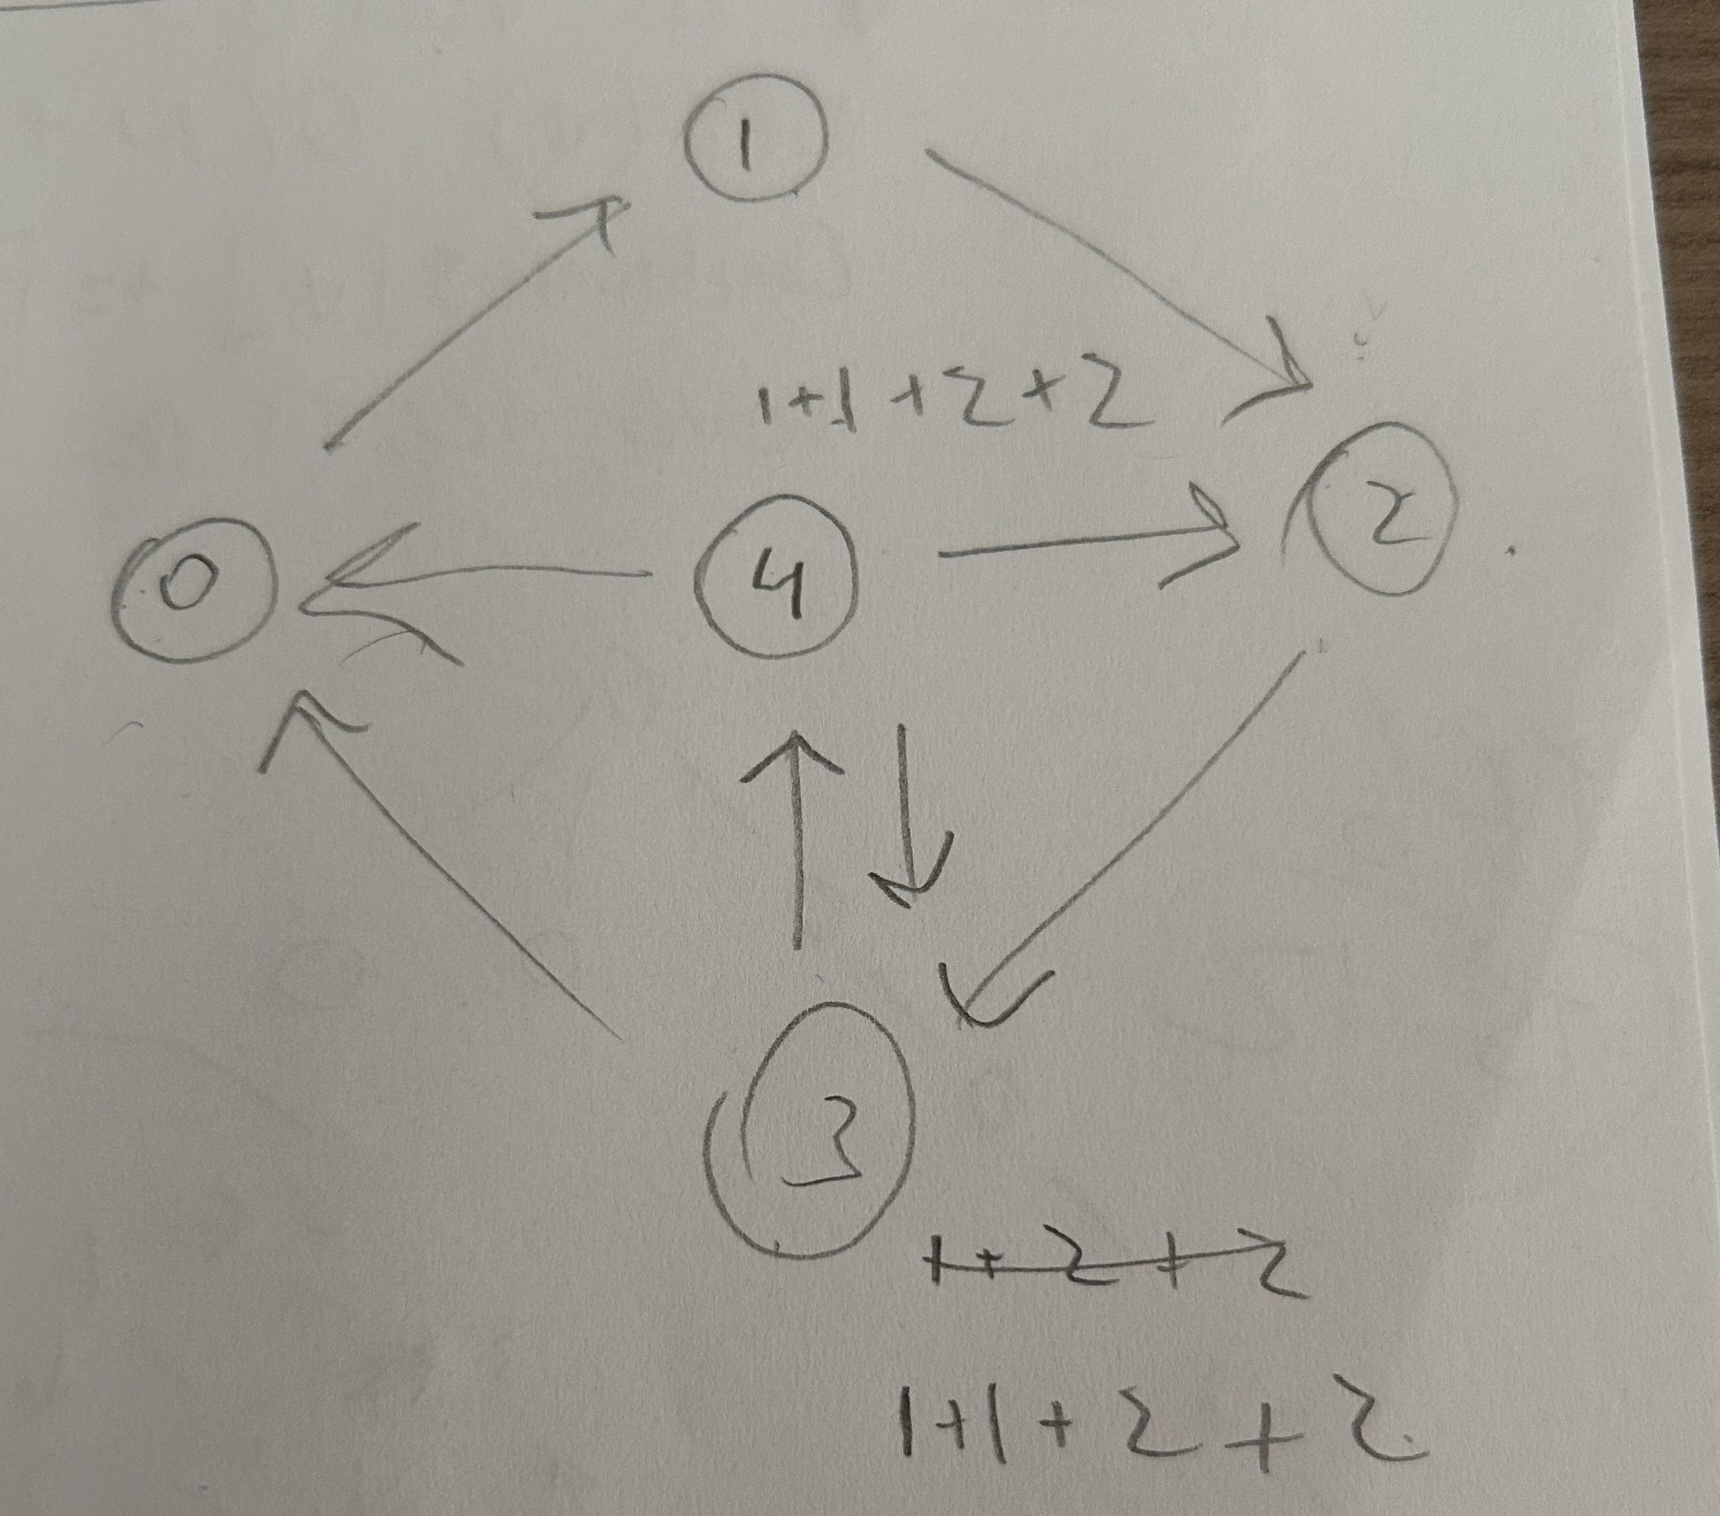 1
1+1+2+2
2
0
4
3
1+2+2
1+1+2+2